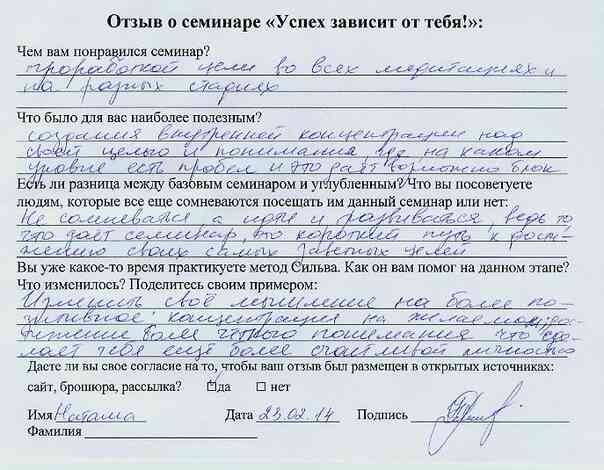 Отзыв о семинаре «Успех зависит от тебя!»:
Чем вам понравился семинар?
проработкой цели во всех медитациях и
на разных стадиях
Что было для вас наиболее полезным?
создания внутренней концентрации над
своей целью и понимания, где на каком
уровне есть пробел и это даёт возможно блок
Есть ли разница между базовым семинаром и углубленным? Что вы посоветуете
людям, которые все еще сомневаются посещать им данный семинар или нет:
Не сомневался а идти и развиваться, ведь то,
что даёт семинар, это короткий путь к дости-
жению своих самых заветных целей
Вы уже какое-то время практикуете метод Сильва. Как он вам помог на данном этапе?
Что изменилось? Поделитесь своим примером:
Изменить своё мышление на более по-
зитивное; концентрация на желаемом,
более чёткого понимания что сде-
лает тебя ещё более счастливой личностью
Даете ли вы свое согласие на то, чтобы ваш отзыв был размещен в открытых источниках:
сайт, брошюра, рассылка? да нет
Имя Наташа Дата 23.02.14 Подпись
Фамилия